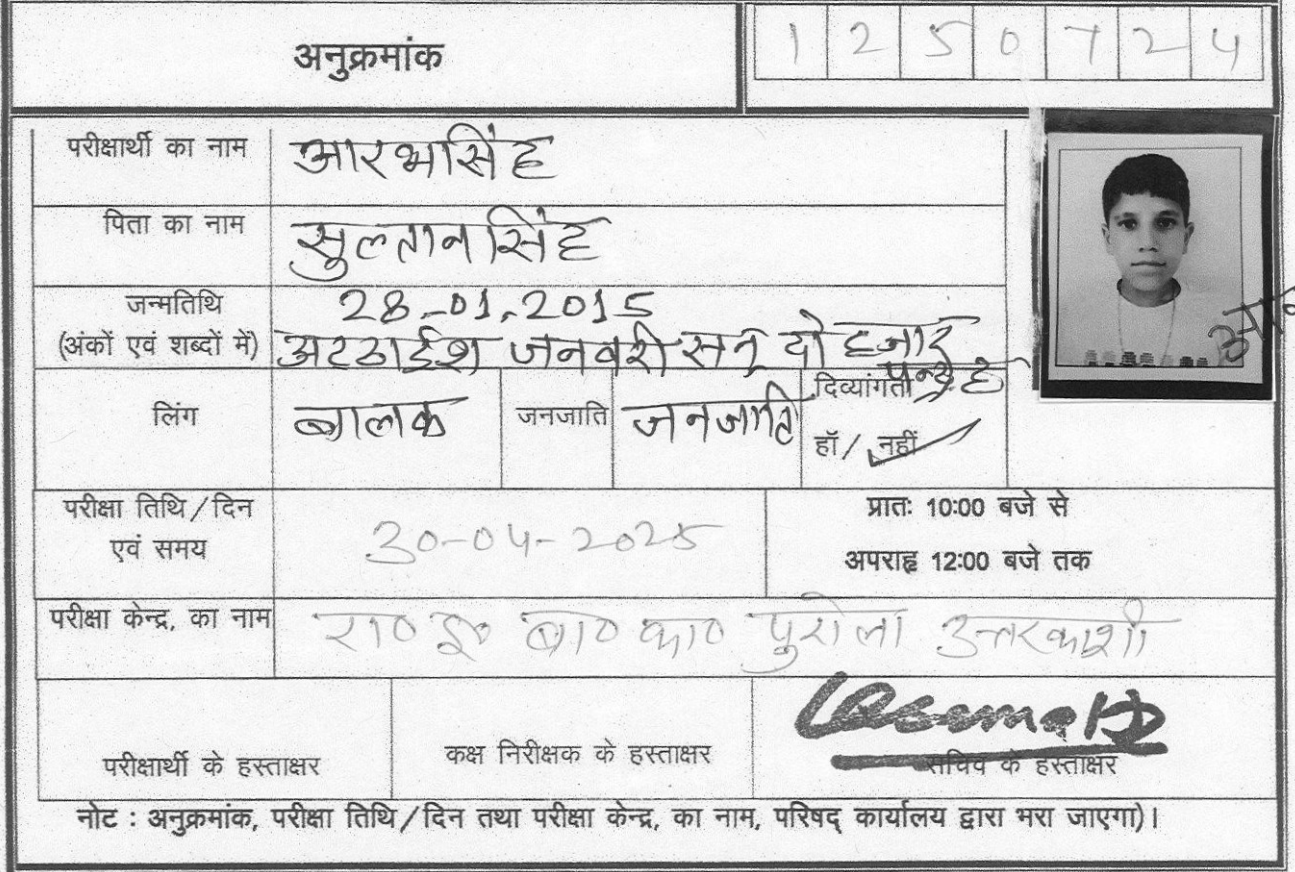 अनुक्रमांक 1 2 5 0 7 2 4
परीक्षार्थी का नाम आरभसिंह
पिता का नाम सुल्तान सिंह
जन्मतिथि 28-01-2015
(अंकों एवं शब्दों में) अटठाईश जनवरी सन् दो हजार
पन्द्रह
लिंग बालक जनजाति जनजाति दिव्यांगता
हॉ / नहीं
परीक्षा तिथि / दिन 30-04-2025 प्रातः 10:00 बजे से
एवं समय अपराह्न 12:00 बजे तक
परीक्षा केन्द्र, का नाम रा० इ० बा० का० पुरोला उत्तरकाशी
परीक्षार्थी के हस्ताक्षर कक्ष निरीक्षक के हस्ताक्षर सचिव के हस्ताक्षर
नोट : अनुक्रमांक, परीक्षा तिथि / दिन तथा परीक्षा केन्द्र, का नाम, परिषद् कार्यालय द्वारा भरा जाएगा)।